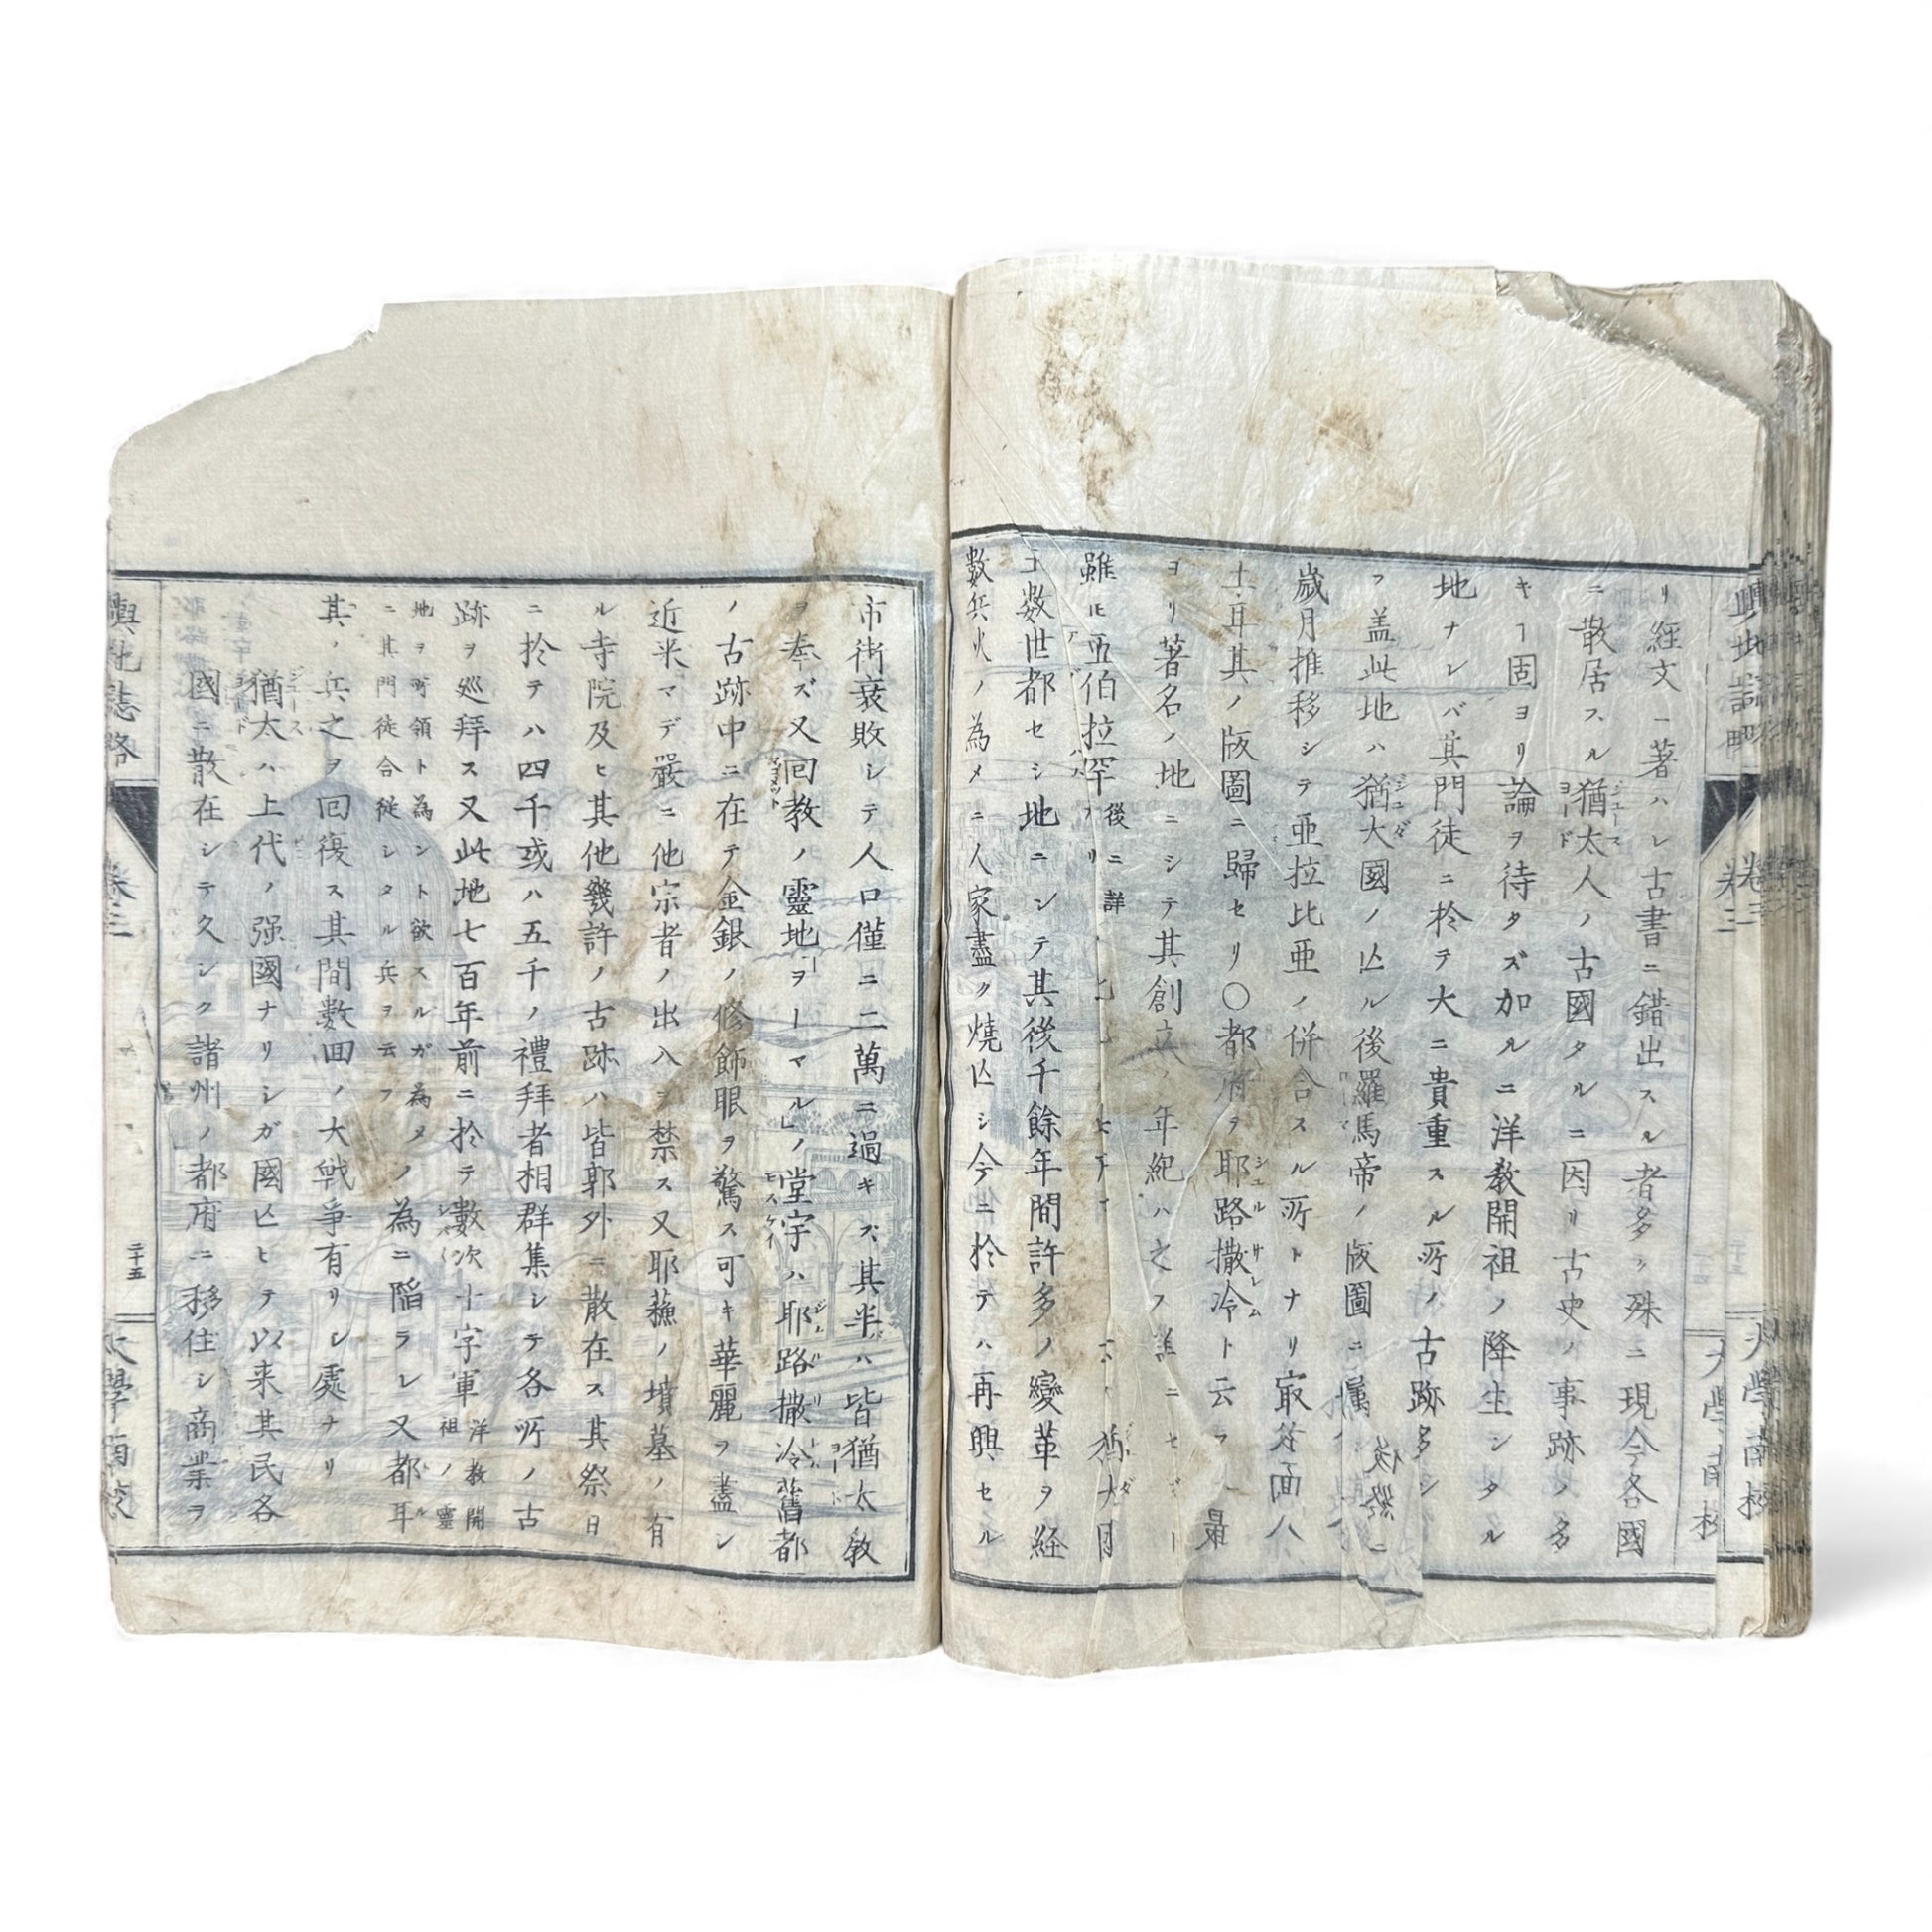 輿地誌略
卷三
大學南校
リ經文ニ著ハレ古書ニ錯出スル者多シ殊ニ現今各國
ニ散居スル猶太人ノ古國タルニ因リ古史ノ事跡ノ多
キヿ固ヨリ論ヲ待タズ加ルニ洋教開祖ノ降生シタル
地ナレバ其門徒ニ於テ大ニ貴重スル所ノ古跡多シ
盖此地ハ猶大國ノ亾ル後羅馬帝ノ版圖ニ属
歳月推移シテ亜拉比亜ノ併合スル所トナリ㝡
土耳其ノ版圖ニ歸セリ〇都府ヲ耶路撒冷ト云フ 最
ヨリ著名ノ地ニシテ其創立ノ年紀ハ之ヲ
雖𪜈亜伯拉罕 後ニ詳
数世都セシ地ニシテ其後千餘年間許多ノ變革ヲ経
數兵火ノ為メニ人家盡ク焼亾シ今ニ於テハ再興セル
市街衰敗シテ人口僅ニ二萬ニ過キズ其半ハ皆猶太教
ヲ奉ズ又回教ノ靈地
ノ堂宇ハ耶路撒冷舊都
ノ古跡中ニ在テ金銀ノ修飾眼ヲ驚ス可キ華麗ヲ盡シ
近来マデ嚴ニ他宗者ノ出入ヲ禁ス又耶蘓ノ墳墓ノ有
ル寺院及ヒ其他幾許ノ古跡ハ皆郭外ニ散在ス其祭日
ニ於テハ四千或ハ五千ノ禮拜者相群集シテ各所ノ古
跡ヲ巡拜ス又此地七百年前ニ於テ數次十字軍 洋教開祖ノ靈
地ヲ所領ト為ント欲スルガ為メニ其門徒合従シタル兵ヲ云フ ノ為ニ陥ラレ又都耳
其ノ兵之ヲ回復ス其間數回ノ大戦爭有リシ處ナリ
猶太ハ上代ノ强國ナリシガ國亾ヒテ以来其民各
國ニ散在シテ久シク諸州ノ都府ニ移住シ商業ヲ
輿地誌略
卷三
二十五
大學南校